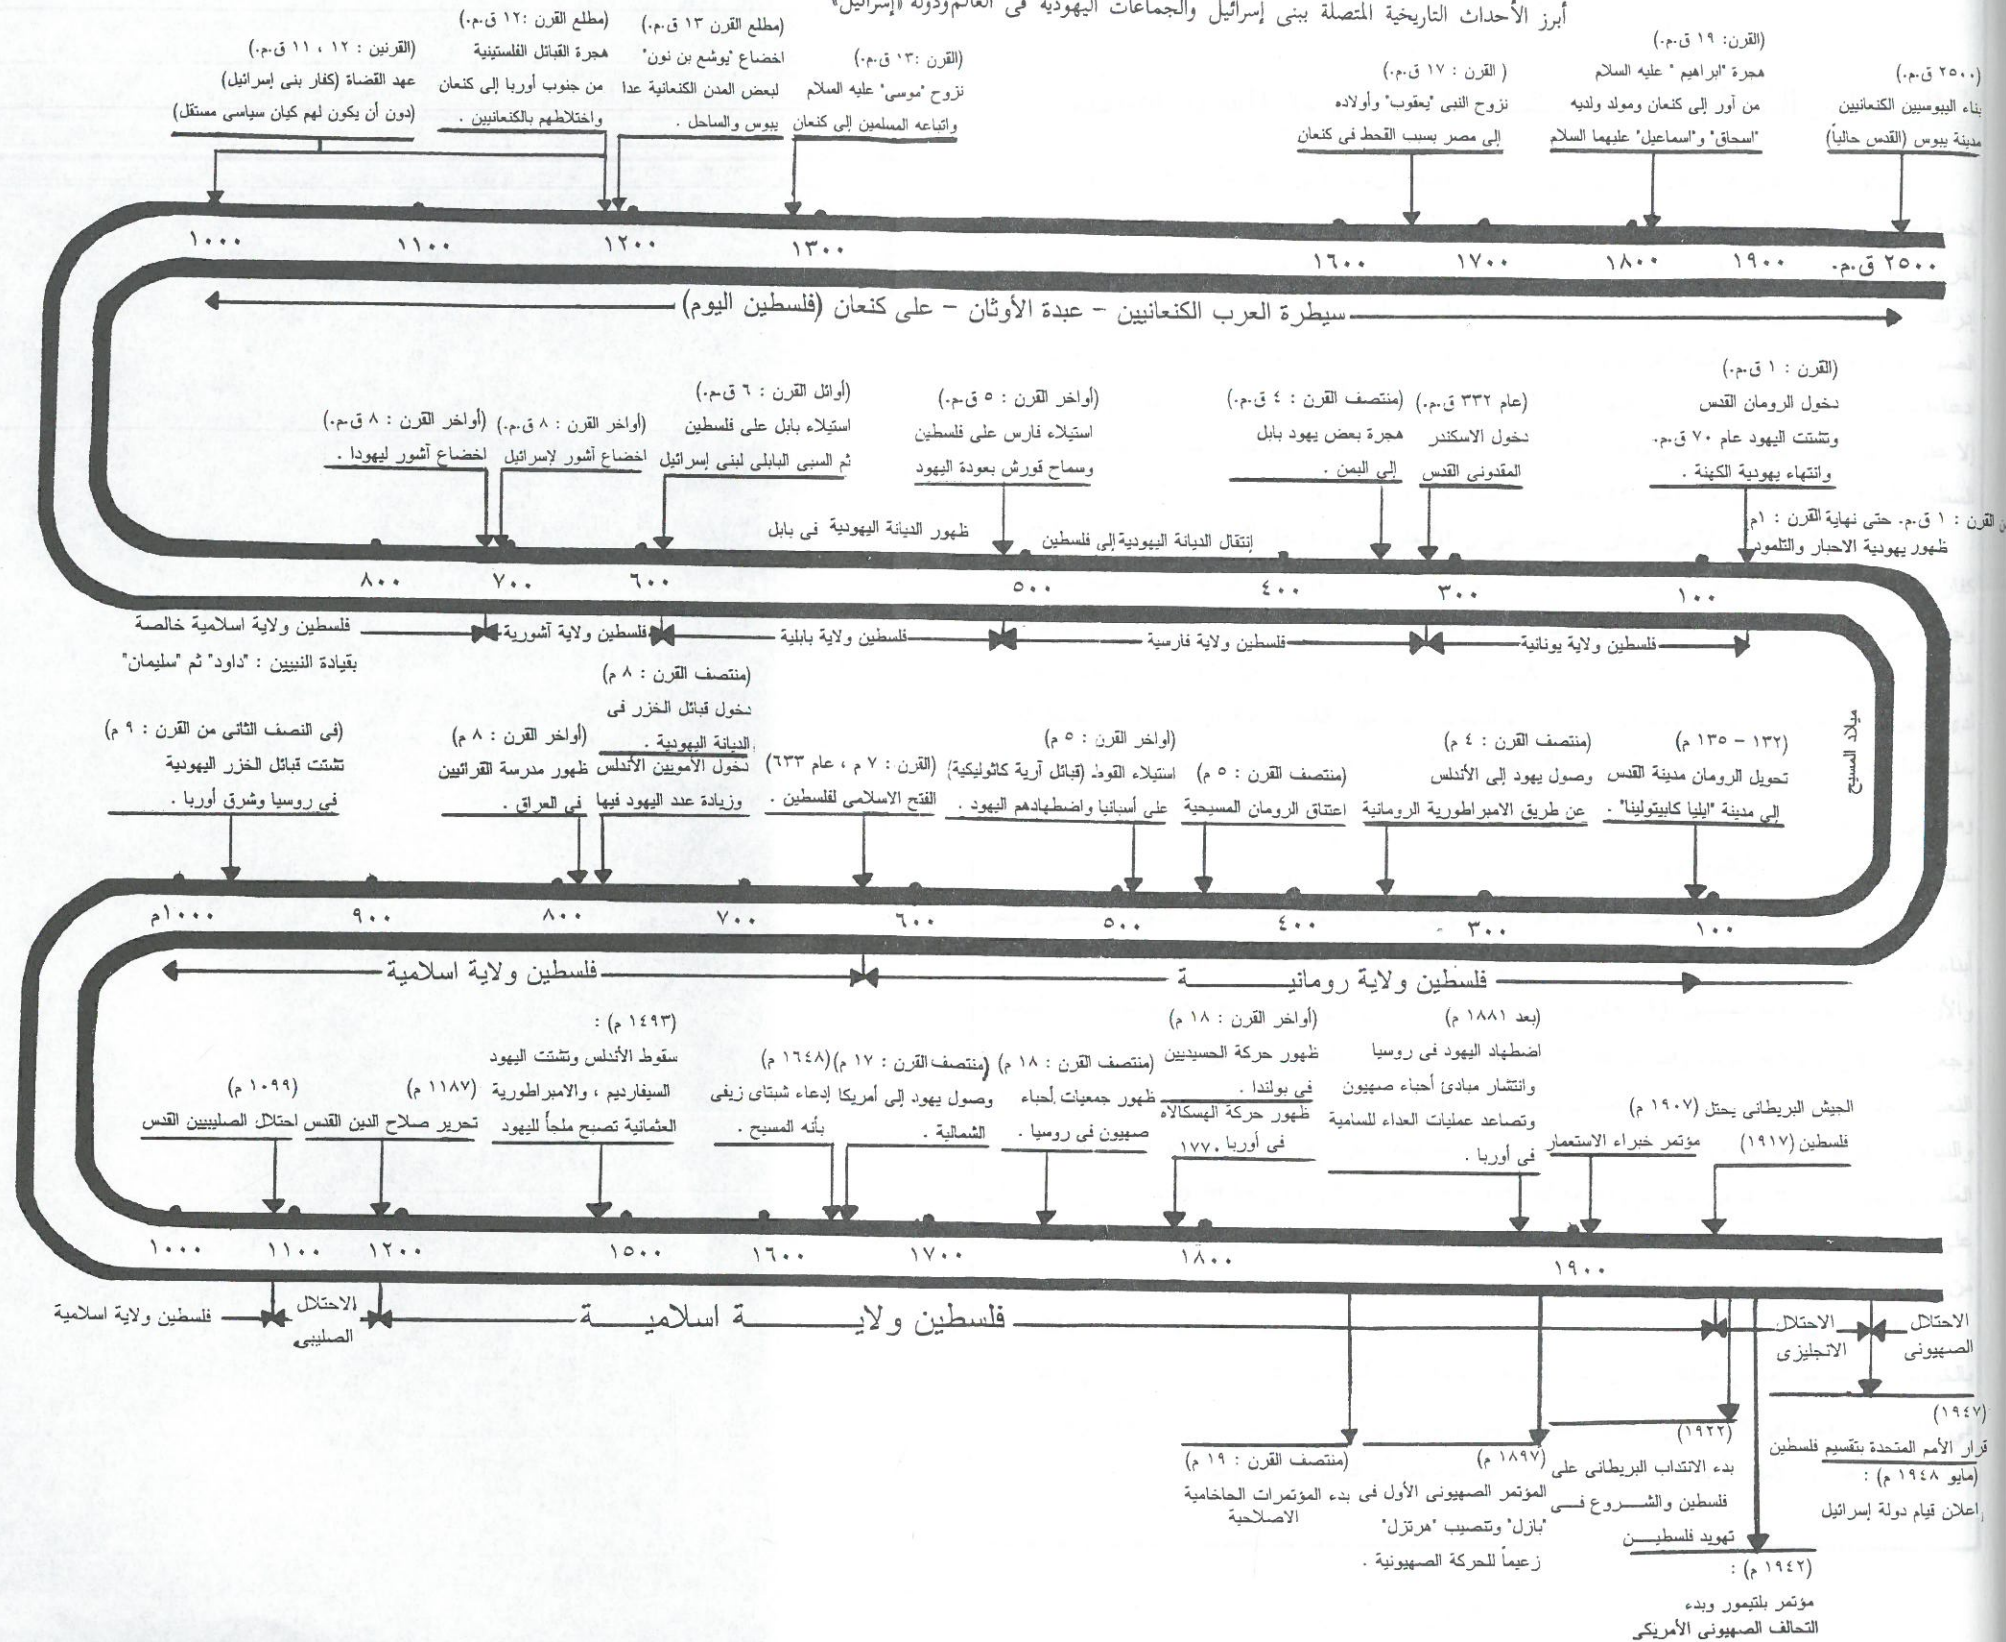 أبرز الأحداث التاريخية المتصلة ببنى إسرائيل والجماعات اليهودية فى العالم ودولة «إسرائيل»
(٢٥٠٠ ق.م.)
بناء اليبوسيين الكنعانيين
مدينة يبوس (القدس حالياً)
(القرن: ١٩ ق.م.)
هجرة "ابراهيم" عليه السلام
من آور إلى كنعان ومولد ولديه
"اسحاق" و"اسماعيل" عليهما السلام
(القرن : ١٧ ق.م.)
نزوح النبى "يعقوب" وأولاده
إلى مصر بسبب القحط فى كنعان
(القرن :١٣ ق.م.)
نزوح "موسى" عليه السلام
واتباعه المسلمين إلى كنعان
(مطلع القرن ١٣ ق.م.)
اخضاع "يوشع بن نون"
لبعض المدن الكنعانية عدا
يبوس والساحل .
(مطلع القرن :١٢ ق.م.)
هجرة القبائل الفلستينية
من جنوب أوربا إلى كنعان
واختلاطهم بالكنعانيين .
(القرنين : ١٢ ، ١١ ق.م.)
عهد القضاة (كفار بنى إسرائيل)
(دون أن يكون لهم كيان سياسى مستقل)
٢٥٠٠ ق.م. ١٩٠٠ ١٨٠٠ ١٧٠٠ ١٦٠٠ ١٣٠٠ ١٢٠٠ ١١٠٠ ١٠٠٠
سيطرة العرب الكنعانيين - عبدة الأوثان - على كنعان (فلسطين اليوم)
(القرن : ١ ق.م.)
دخول الرومان القدس
وتشتت اليهود عام ٧٠ ق.م.
وانتهاء يهودية الكهنة .
القرن : ١ ق.م. حتى نهاية القرن : ١م
ظهور يهودية الاحبار والتلمود
(عام ٣٣٢ ق.م.)
دخول الاسكندر
المقدونى القدس
(منتصف القرن : ٤ ق.م.)
هجرة بعض يهود بابل
إلى اليمن .
إنتقال الديانة اليهودية إلى فلسطين
(أواخر القرن : ٥ ق.م.)
استيلاء فارس على فلسطين
وسماح قورش بعودة اليهود
ظهور الديانة اليهودية فى بابل
(أوائل القرن : ٦ ق.م.)
استيلاء بابل على فلسطين
ثم السبى البابلى لبنى إسرائيل
(أواخر القرن : ٨ ق.م.)
اخضاع آشور لإسرائيل
(أواخر القرن : ٨ ق.م.)
اخضاع آشور ليهودا .
١٠٠ ٣٠٠ ٤٠٠ ٥٠٠ ٦٠٠ ٧٠٠ ٨٠٠
فلسطين ولاية يونانية
فلسطين ولاية فارسية
فلسطين ولاية بابلية
فلسطين ولاية آشورية
فلسطين ولاية اسلامية خالصة
بقيادة النبيين : "داود" ثم "سليمان"
ميلاد المسيح
(١٣٢ - ١٣٥ م)
تحويل الرومان مدينة القدس
إلى مدينة "ايليا كابيتولينا" .
(منتصف القرن : ٤ م)
وصول يهود إلى الأندلس
عن طريق الامبراطورية الرومانية
(منتصف القرن : ٥ م)
اعتناق الرومان المسيحية
(أواخر القرن : ٥ م)
استيلاء القوط (قبائل آرية كاثوليكية)
على أسبانيا واضطهادهم اليهود .
(القرن : ٧ م ، عام ٦٣٣)
الفتح الاسلامى لفلسطين .
(منتصف القرن : ٨ م)
دخول قبائل الخزر فى
الديانة اليهودية .
دخول الأمويين الأندلس
وزيادة عدد اليهود فيها
(أواخر القرن : ٨ م)
ظهور مدرسة القرائيين
فى العراق .
(فى النصف الثانى من القرن : ٩ م)
تشتت قبائل الخزر اليهودية
فى روسيا وشرق أوربا .
١٠٠ ٣٠٠ ٤٠٠ ٥٠٠ ٦٠٠ ٧٠٠ ٨٠٠ ٩٠٠ ١٠٠٠م
فلسطين ولاية رومانيـــــة
فلسطين ولاية اسلامية
الجيش البريطانى يحتل
فلسطين (١٩١٧)
(١٩٠٧ م)
مؤتمر خبراء الاستعمار
(بعد ١٨٨١ م)
اضطهاد اليهود فى روسيا
وانتشار مبادئ أحباء صهيون
وتصاعد عمليات العداء للسامية
فى أوربا .
(أواخر القرن : ١٨ م)
ظهور حركة الحسيديين
فى بولندا .
ظهور حركة الهسكالاه
فى أوربا ١٧٧٠
(منتصف القرن : ١٨ م)
ظهور جمعيات أحباء
صهيون فى روسيا .
(منتصف القرن : ١٧ م)
وصول يهود إلى أمريكا
الشمالية .
(١٦٤٨ م)
إدعاء شبتاى زيفى
بأنه المسيح .
(١٤٩٣ م) :
سقوط الأندلس وتشتت اليهود
السيفارديم ، والامبراطورية
العثمانية تصبح ملجأ لليهود
(١١٨٧ م)
تحرير صلاح الدين القدس
(١٠٩٩ م)
احتلال الصليبيين القدس
١٩٠٠ ١٨٠٠ ١٧٠٠ ١٦٠٠ ١٥٠٠ ١٢٠٠ ١١٠٠ ١٠٠٠
الاحتلال
الصهيونى
الاحتلال
الانجليزى
فلسطين ولايـــــــة اسلاميـــــة
الاحتلال
الصليبى
فلسطين ولاية اسلامية
(١٩٤٧)
قرار الأمم المتحدة بتقسيم فلسطين
(مايو ١٩٤٨ م) :
اعلان قيام دولة إسرائيل
(١٩٢٢)
بدء الانتداب البريطانى على
فلسطين والشـــروع فـــى
تهويد فلسطيـــن
(١٩٤٢ م) :
مؤتمر بلتيمور وبدء
التحالف الصهيونى الأمريكى
(١٨٩٧ م)
المؤتمر الصهيونى الأول فى
"بازل" وتنصيب "هرتزل"
زعيماً للحركة الصهيونية .
(منتصف القرن : ١٩ م)
بدء المؤتمرات الحاخامية
الاصلاحية